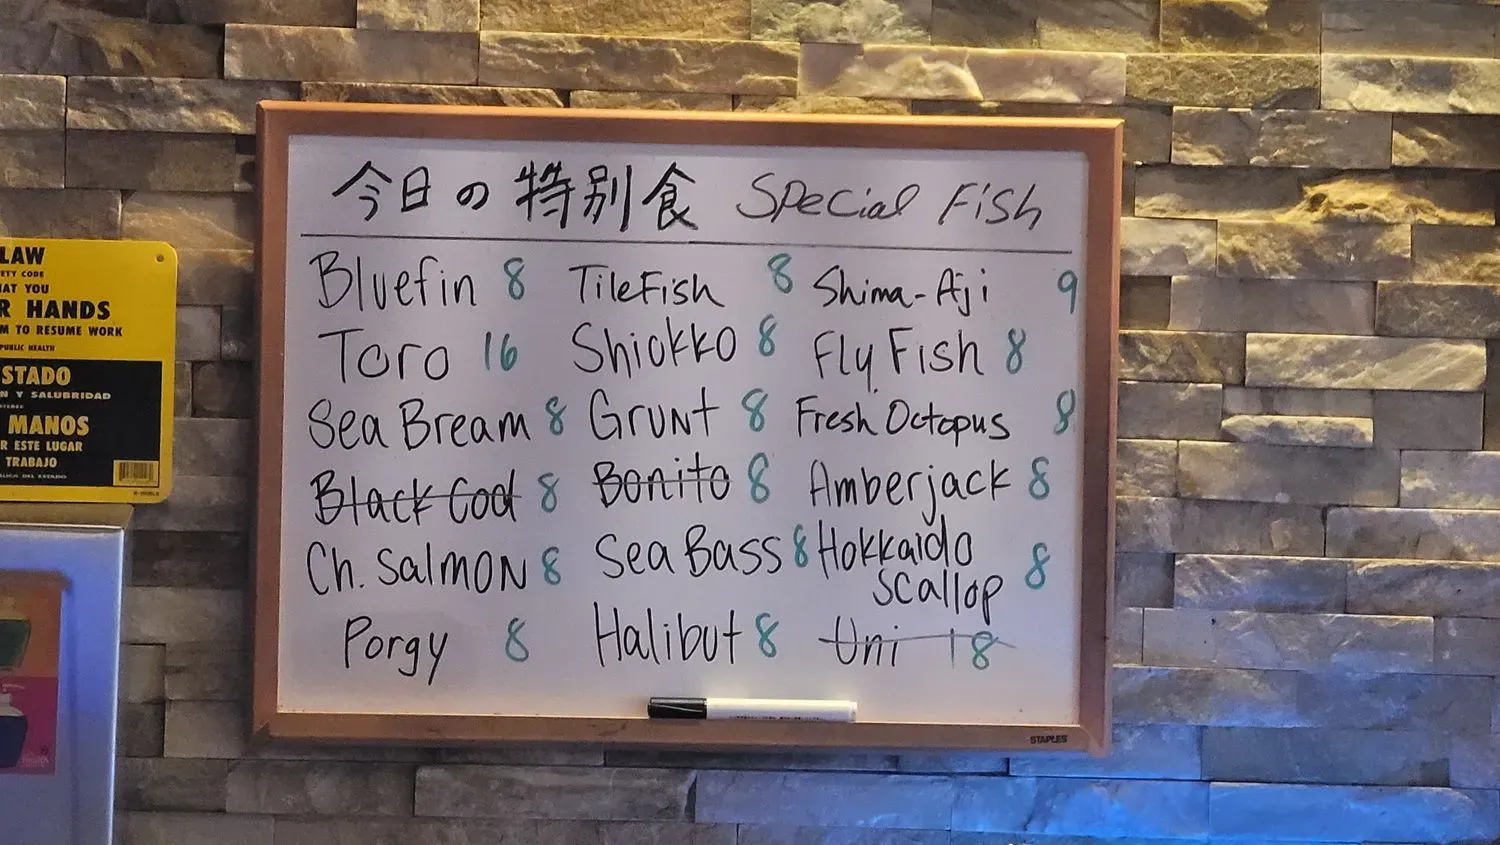 今日の特別食 Special Fish
Bluefin 8 TileFish 8 Shima-Aji 9
Toro 16 Shiokko 8 Fly Fish 8
Sea Bream 8 Grunt 8 Fresh Octopus 8
Black Cod 8 Bonito 8 Amberjack 8
Ch. Salmon 8 Sea Bass 8 Hokkaido
Scallop 8
Porgy 8 Halibut 8 Uni 18
STAPLES
LAW
ETY CODE
HAT YOU
R HANDS
M TO RESUME WORK
PUBLIC HEALTH
STADO
N Y SALUBRIDAD
MANOS
R ESTE LUGAR
TRABAJO